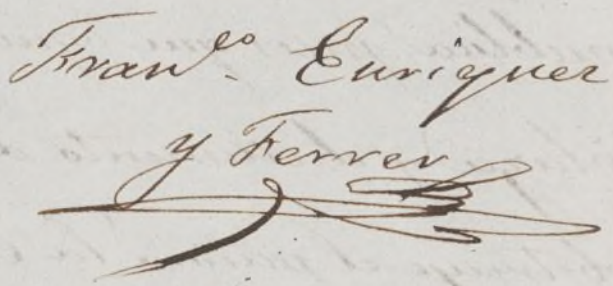 Fran.co Enriquez
y Ferrer